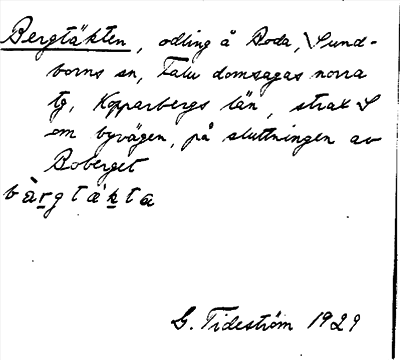 Bergtäkten, odling å Boda, Sund-
borns sn, Falu domsagas norra
tg, Kopparbergs län, strax S
om byvägen, på sluttningen av
Boberget
bàrgtäkta
G. Tideström 1929